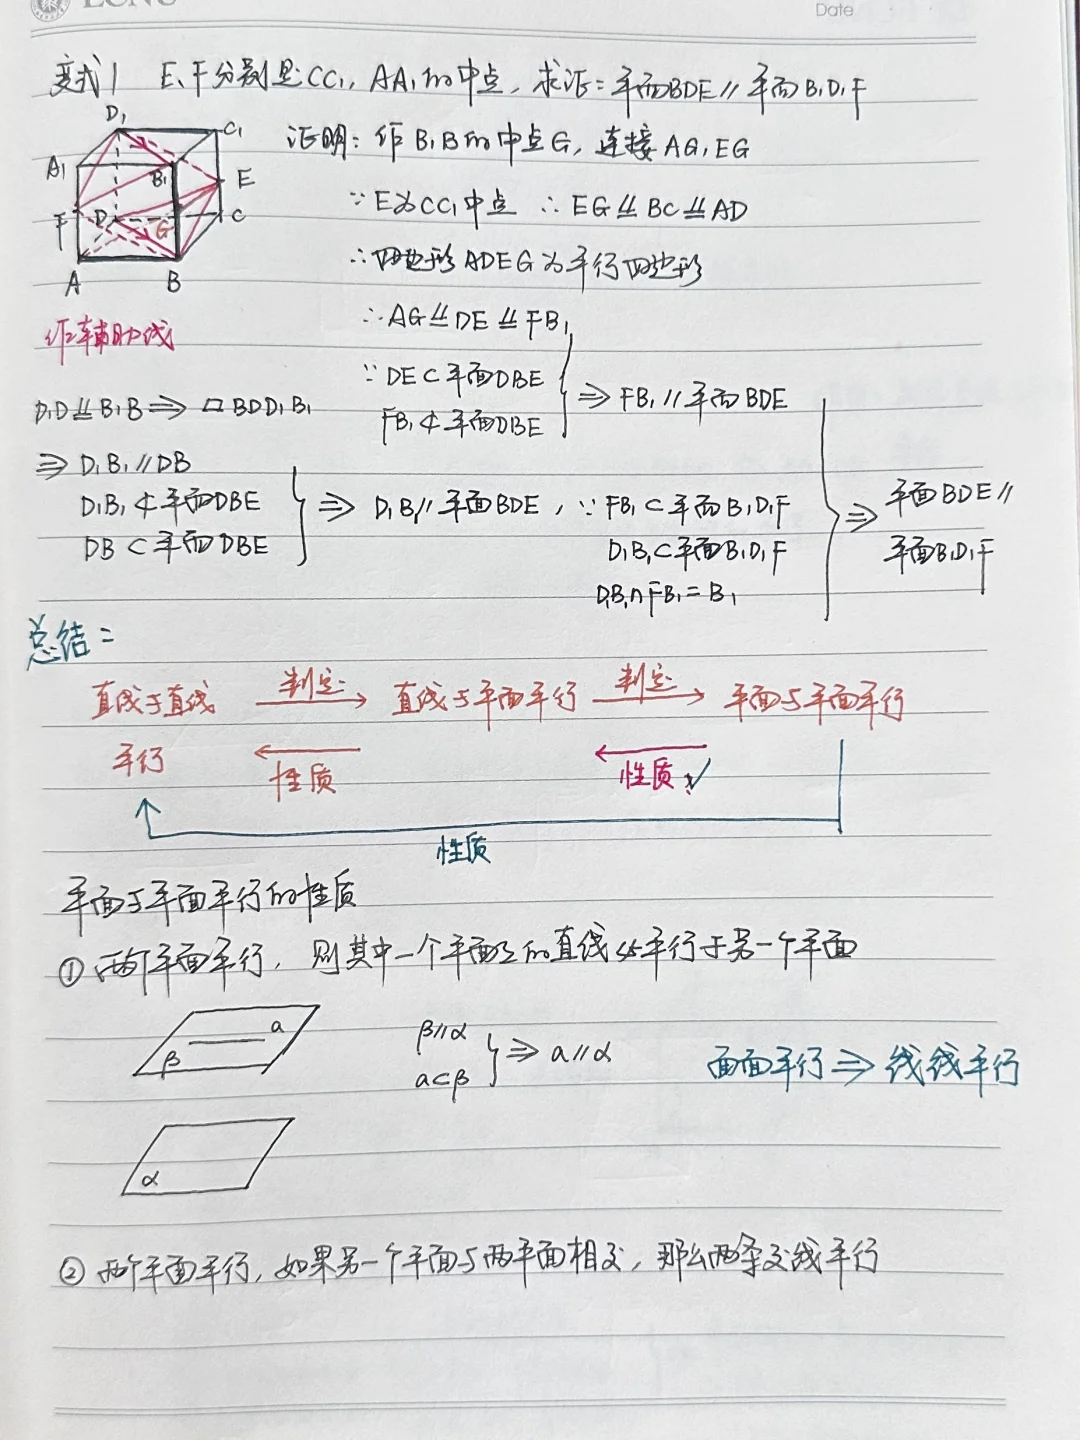 ECNU
Date
变式1 E、F分别是CC₁, AA₁的中点, 求证: 平面BDE // 平面B₁D₁F
D₁
C₁
A₁
B₁
E
F
D
G
C
A
B
证明: 作B₁B的中点G, 连接AG, EG
∵E为CC₁中点 ∴EG⫽BC⫽AD
∴四边形ADEG为平行四边形
∴AG⫽DE⫽FB₁
作辅助线
∵DE⊂平面DBE
FB₁⊄平面DBE
⇒ FB₁//平面BDE
D₁D⫽B₁B⇒▱BDD₁B₁
⇒ D₁B₁//DB
D₁B₁⊄平面DBE
DB⊂平面DBE
⇒ D₁B₁//平面BDE, ∵FB₁⊂平面B₁D₁F
D₁B₁⊂平面B₁D₁F
D₁B₁∩FB₁=B₁
⇒ 平面BDE//
平面B₁D₁F
总结:
直线与直线 判定→ 直线与平面平行 判定→ 平面与平面平行
平行 ←性质 ←性质✓
性质
平面与平面平行的性质
① 两个平面平行, 则其中一个平面内的直线必平行于另一个平面
a
β
β//α
a⊂β
⇒ a//α
面面平行⇒线线平行
α
② 两个平面平行, 如果另一个平面与两平面相交, 那么两条交线平行